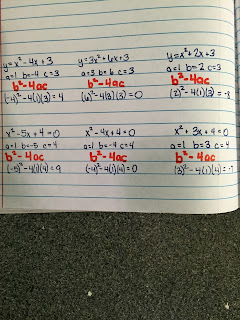 y=x²-4x+3
a=1 b=-4 c=3
b²-4ac
(-4)²-4(1)(3)=4
y=3x²-6x+3
a=3 b=6 c=3
b²-4ac
(6)²-4(3)(3)=0
y=x²+2x+3
a=1 b=2 c=3
b²-4ac
(2)²-4(1)(3)=-8
x²-5x+4=0
a=1 b=-5 c=4
b²-4ac
(-5)²-4(1)(4)=9
x²-4x+4=0
a=1 b=-4 c=4
b²-4ac
(-4)²-4(1)(4)=0
x²+3x+4=0
a=1 b=3 c=4
b²-4ac
(3)²-4(1)(4)=-7